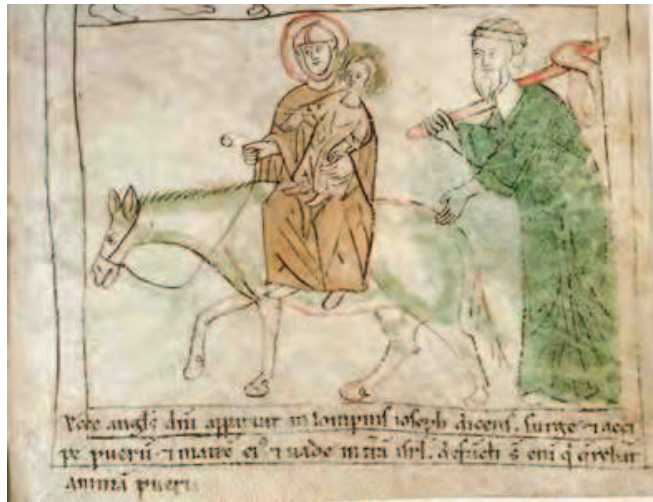 Ecce angls dni apparuit in sompnis ioseph dicens. surge ⁊ acci
pe pueru ⁊ matre ei⁹ ⁊ uade in tra isrl. defucti s eni q qrebat
anima pueri